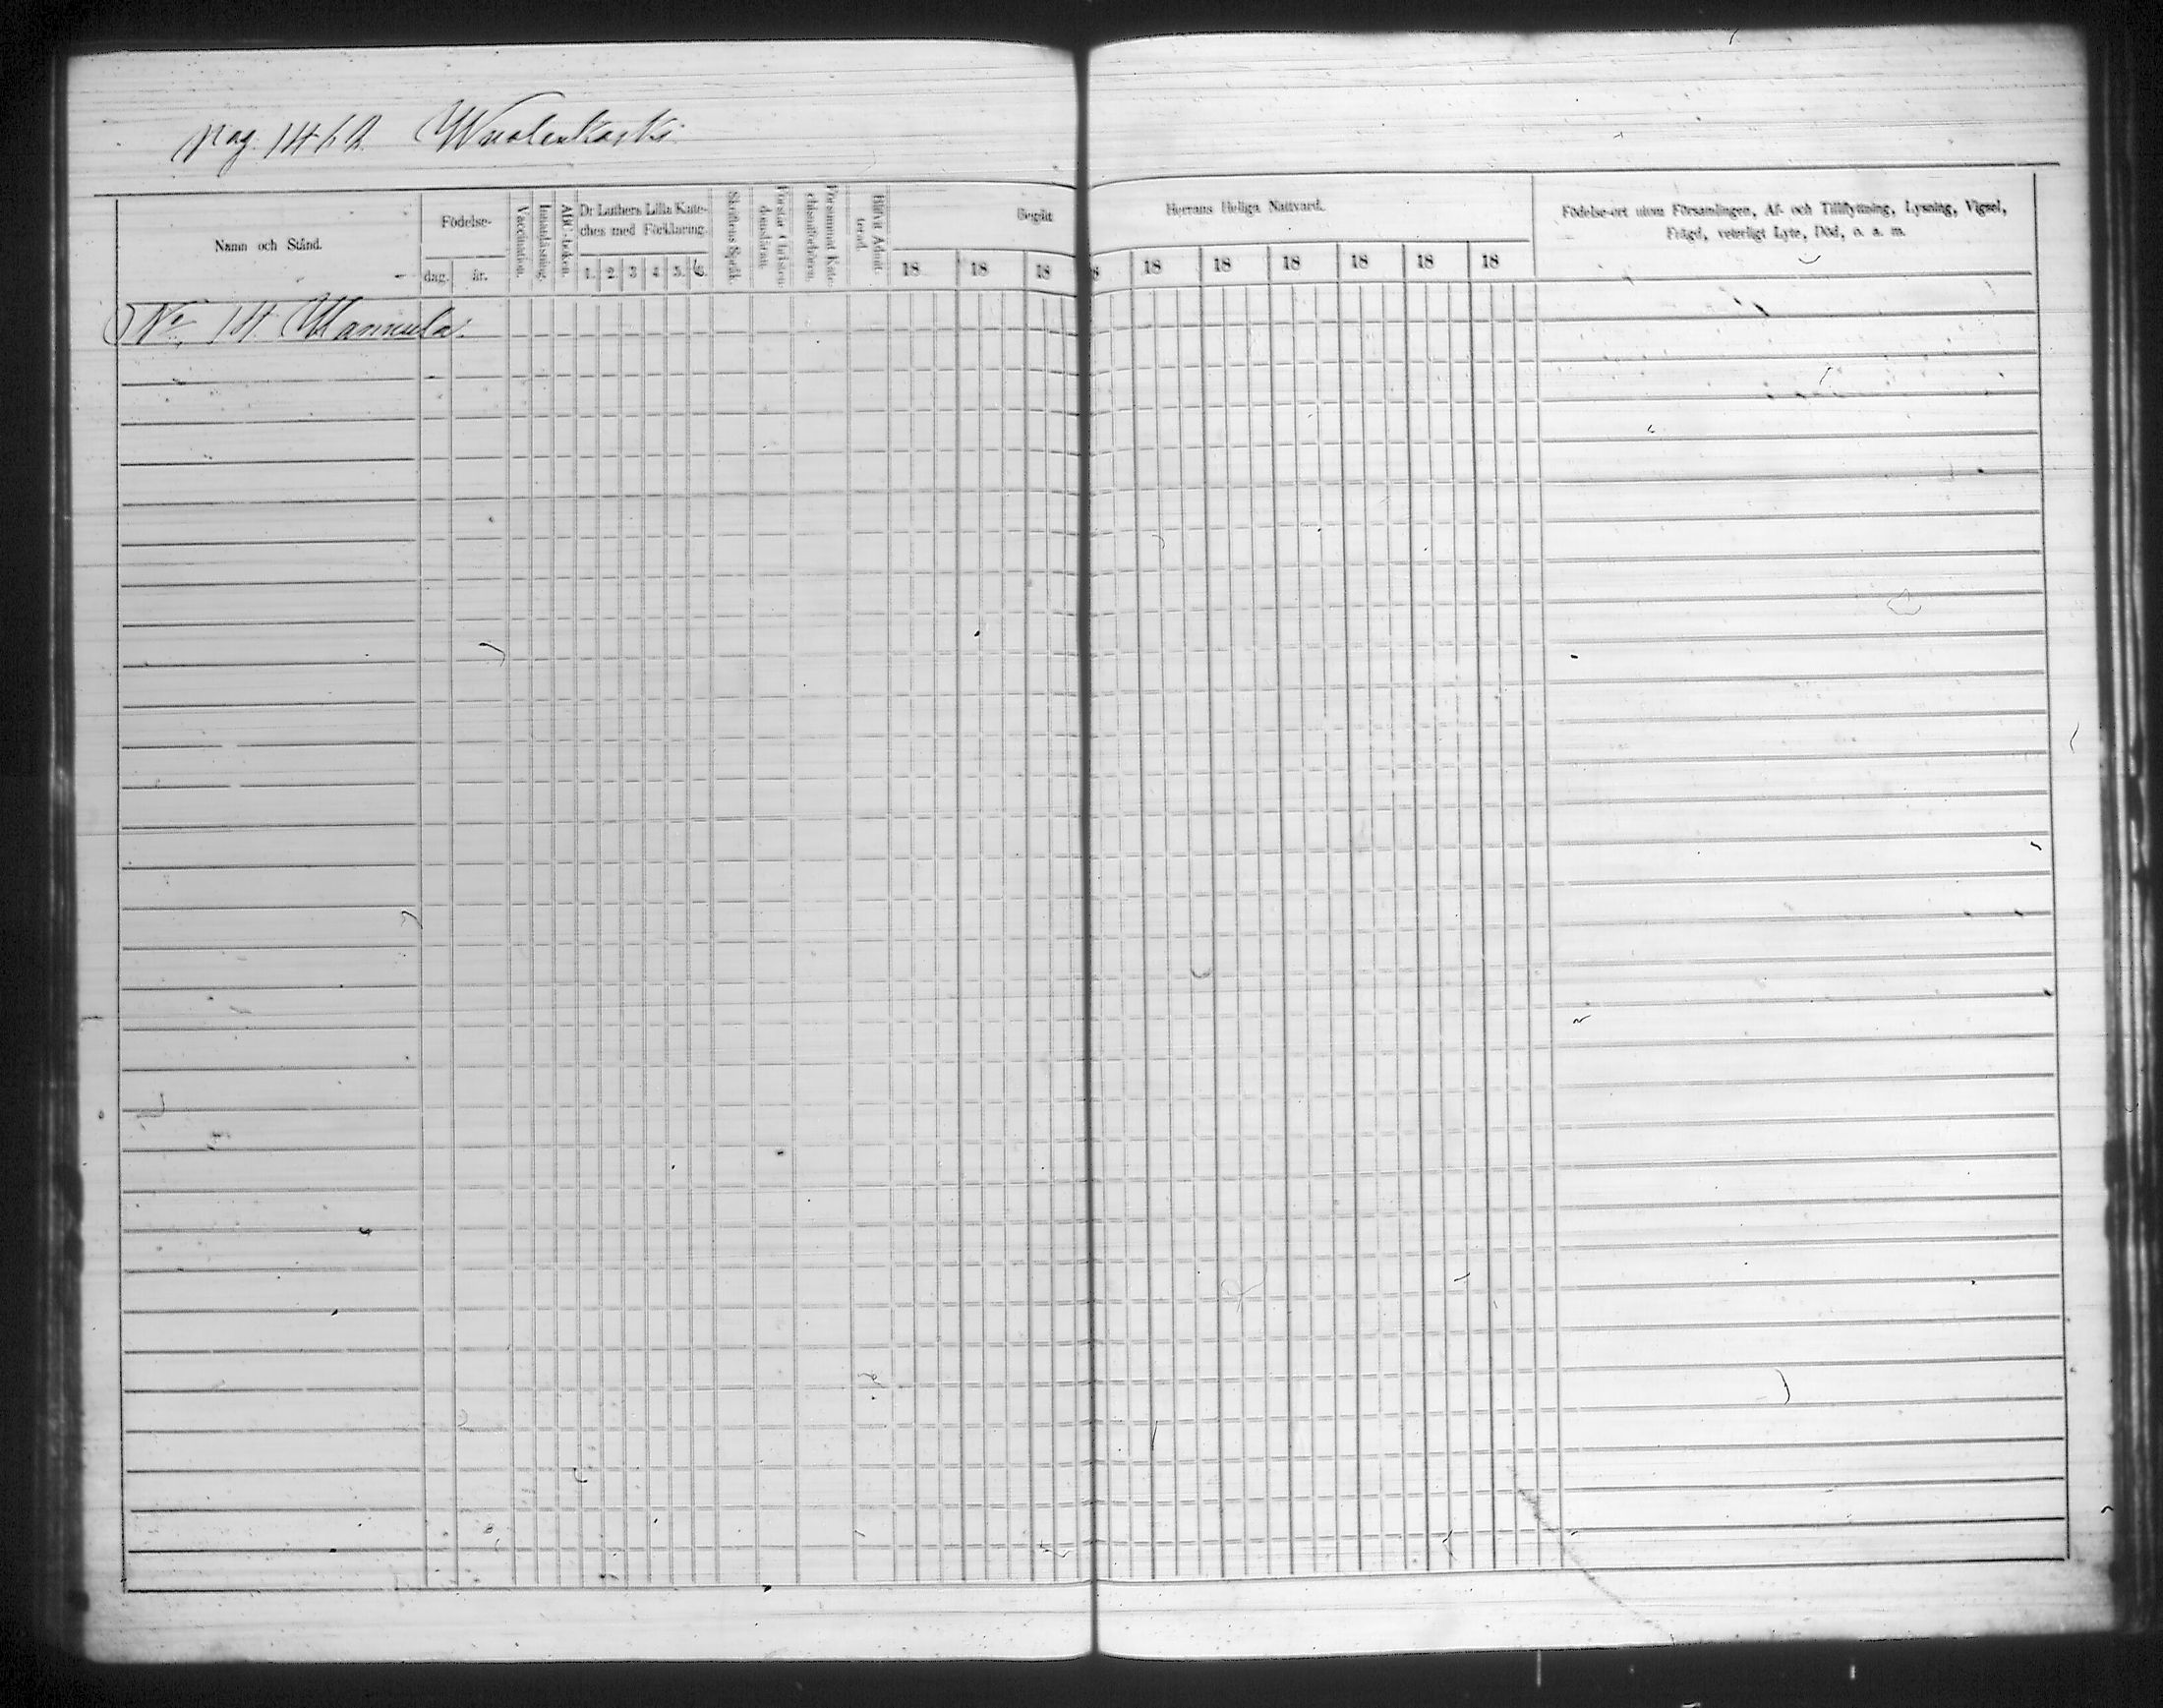 pag. 146 a. Wuolenkoski.
Namn och Stånd.
Födelse-
dag.
år.
Vaccination.
Innanläsning.
ABC-boken.
Dr Luthers Lilla Kate-
ches med Förklaring.
1. 2. 3 4. 5. 6.
Skriftens Språk.
Förstår Christen-
domsläran.
Försummat Kate-
chismiförhören.
Blifvit Admit-
terad.
Begått Herrans Heliga Nattvard.
18 18 18 18 18 18 18 18 18
Födelse-ort utom Församlingen, Af- och Tillflyttning, Lysning, Vigsel,
Frägd, veterligt Lyte, Död, o. a. m.
No 14. Mannula.